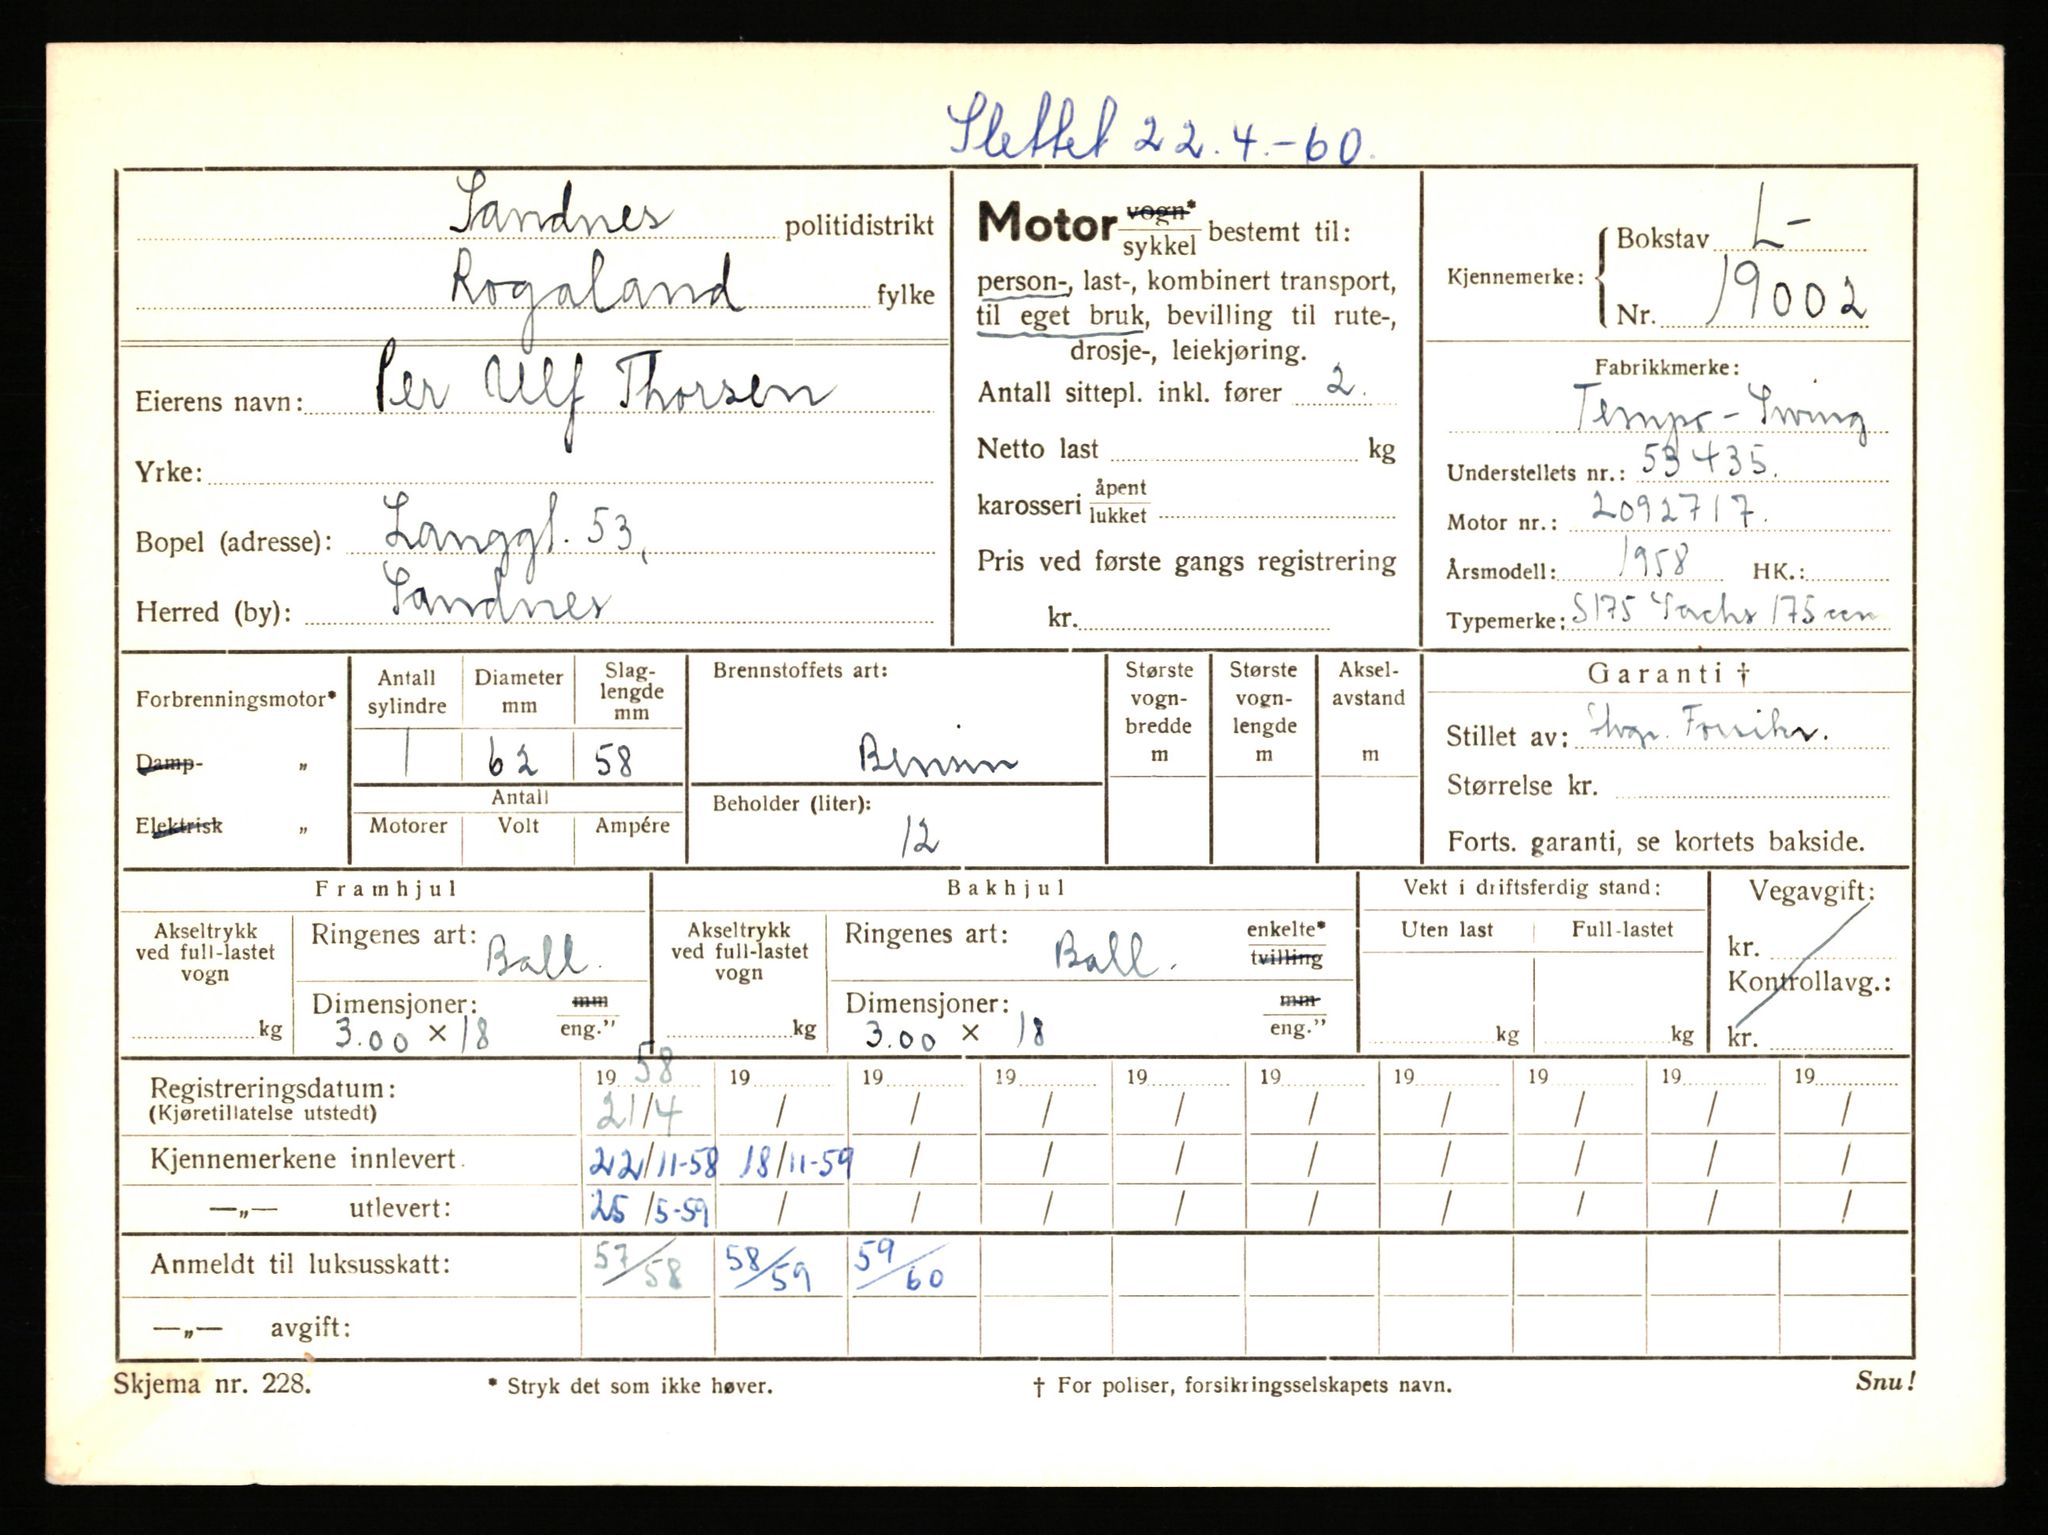 Slettet 22.4.-60.
Sandnes politidistrikt
Rogaland fylke
Eierens navn: Per Ulf Thorsen
Yrke:
Bopel (adresse): Langgt. 53,
Herred (by): Sandnes
Motor vogn* sykkel bestemt til:
person-, last-, kombinert transport,
til eget bruk, bevilling til rute-,
drosje-, leiekjøring.
Antall sittepl. inkl. fører 2.
Netto last kg
karosseri åpent lukket
Pris ved første gangs registrering
kr.
Kjennemerke: Bokstav L-
Nr. 19002
Fabrikkmerke:
Tempo-Swing
Understellets nr.: 53435.
Motor nr.: 2092717.
Årsmodell: 1958 HK.:
Typemerke: S175 Sachs 175 ccm
Forbrenningsmotor*
Damp- „
Elektrisk „
Antall sylindre Diameter mm Slag-lengde mm
1 62 58
Antall
Motorer Volt Ampére
Brennstoffets art:
Bensin
Beholder (liter):
12
Største vogn-bredde m
Største vogn-lengde m
Aksel-avstand m
Garanti †
Stillet av:
Størrelse kr.
Forts. garanti, se kortets bakside.
Framhjul
Akseltrykk ved full-lastet vogn
kg
Ringenes art: Ball.
Dimensjoner: mm
3.00 × 18 eng."
Bakhjul
Akseltrykk ved full-lastet vogn
kg
Ringenes art: Ball. enkelte* tvilling
Dimensjoner: mm
3.00 × 18 eng."
Vekt i driftsferdig stand:
Uten last Full-lastet
kg kg
Vegavgift:
kr.
Kontrollavg.:
kr.
Registreringsdatum: 19 58 19 19 19 19 19 19 19 19 19
(Kjøretillatelse utstedt) 21/4 / / / / / / / / /
Kjennemerkene innlevert. 22/11-58 18/11-59 / / / / / / / /
—„— utlevert: 25/5-59 / / / / / / / / /
Anmeldt til luksusskatt: 57/58 58/59 59/60
—„— avgift:
Skjema nr. 228. * Stryk det som ikke høver. † For poliser, forsikringsselskapets navn. Snu!